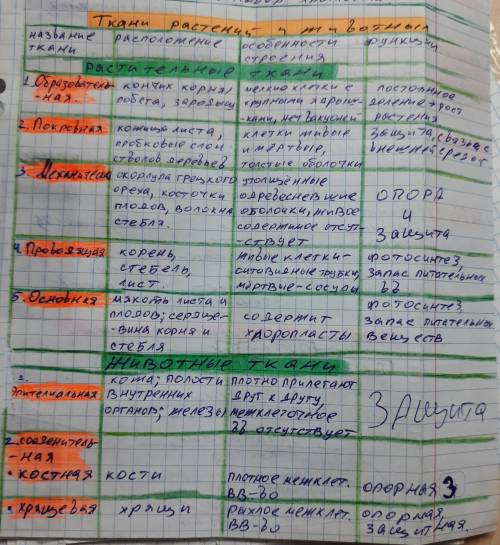 Ткани растений и животных
название ткани
расположение
особенности строения
функции
Растительные ткани
1. Образователь-
-ная.
кончик корня,
побега, зародыш
мелкие клетки с
крупными ядрыш-
-ками, нет вакуолей
постоянное
деление → рост
растения
2. Покровная
кожица листа,
пробковые слои
стволов деревьев
клетки живые
и мёртвые,
толстые оболочки
Защита, связь с
внешней средой
3. Механическа
скорлупа грецкого
ореха, косточки
плодов, волокна
стебля.
утолщённые
одревесневшие
оболочки, живое
содержимое отсут-
-ствует
ОПОРА
и
Защита
4. Проводящая
корень,
стебель,
лист.
живые клетки-
ситовидные трубки,
мёртвые-сосуды
фотосинтез,
запас питательных
вв
5. Основная
мякоть листа и
плодов; сердце-
-вина корня и
стебля
содержит
хлоропласты
фотосинтез
запас питательных
веществ
Животные ткани
1.
Эпителиальная
кожа; полости
внутренних
органов; железы
плотно прилегают
друг к другу,
межклеточное
вв отсутствует
ЗАщита
2. соеденитель-
-ная
• костная
кости
плотное межклет.
ВВ-во
опорная З
• хрящевая
хрящи
рыхлое межклет.
ВВ-во
опорная,
защитная.